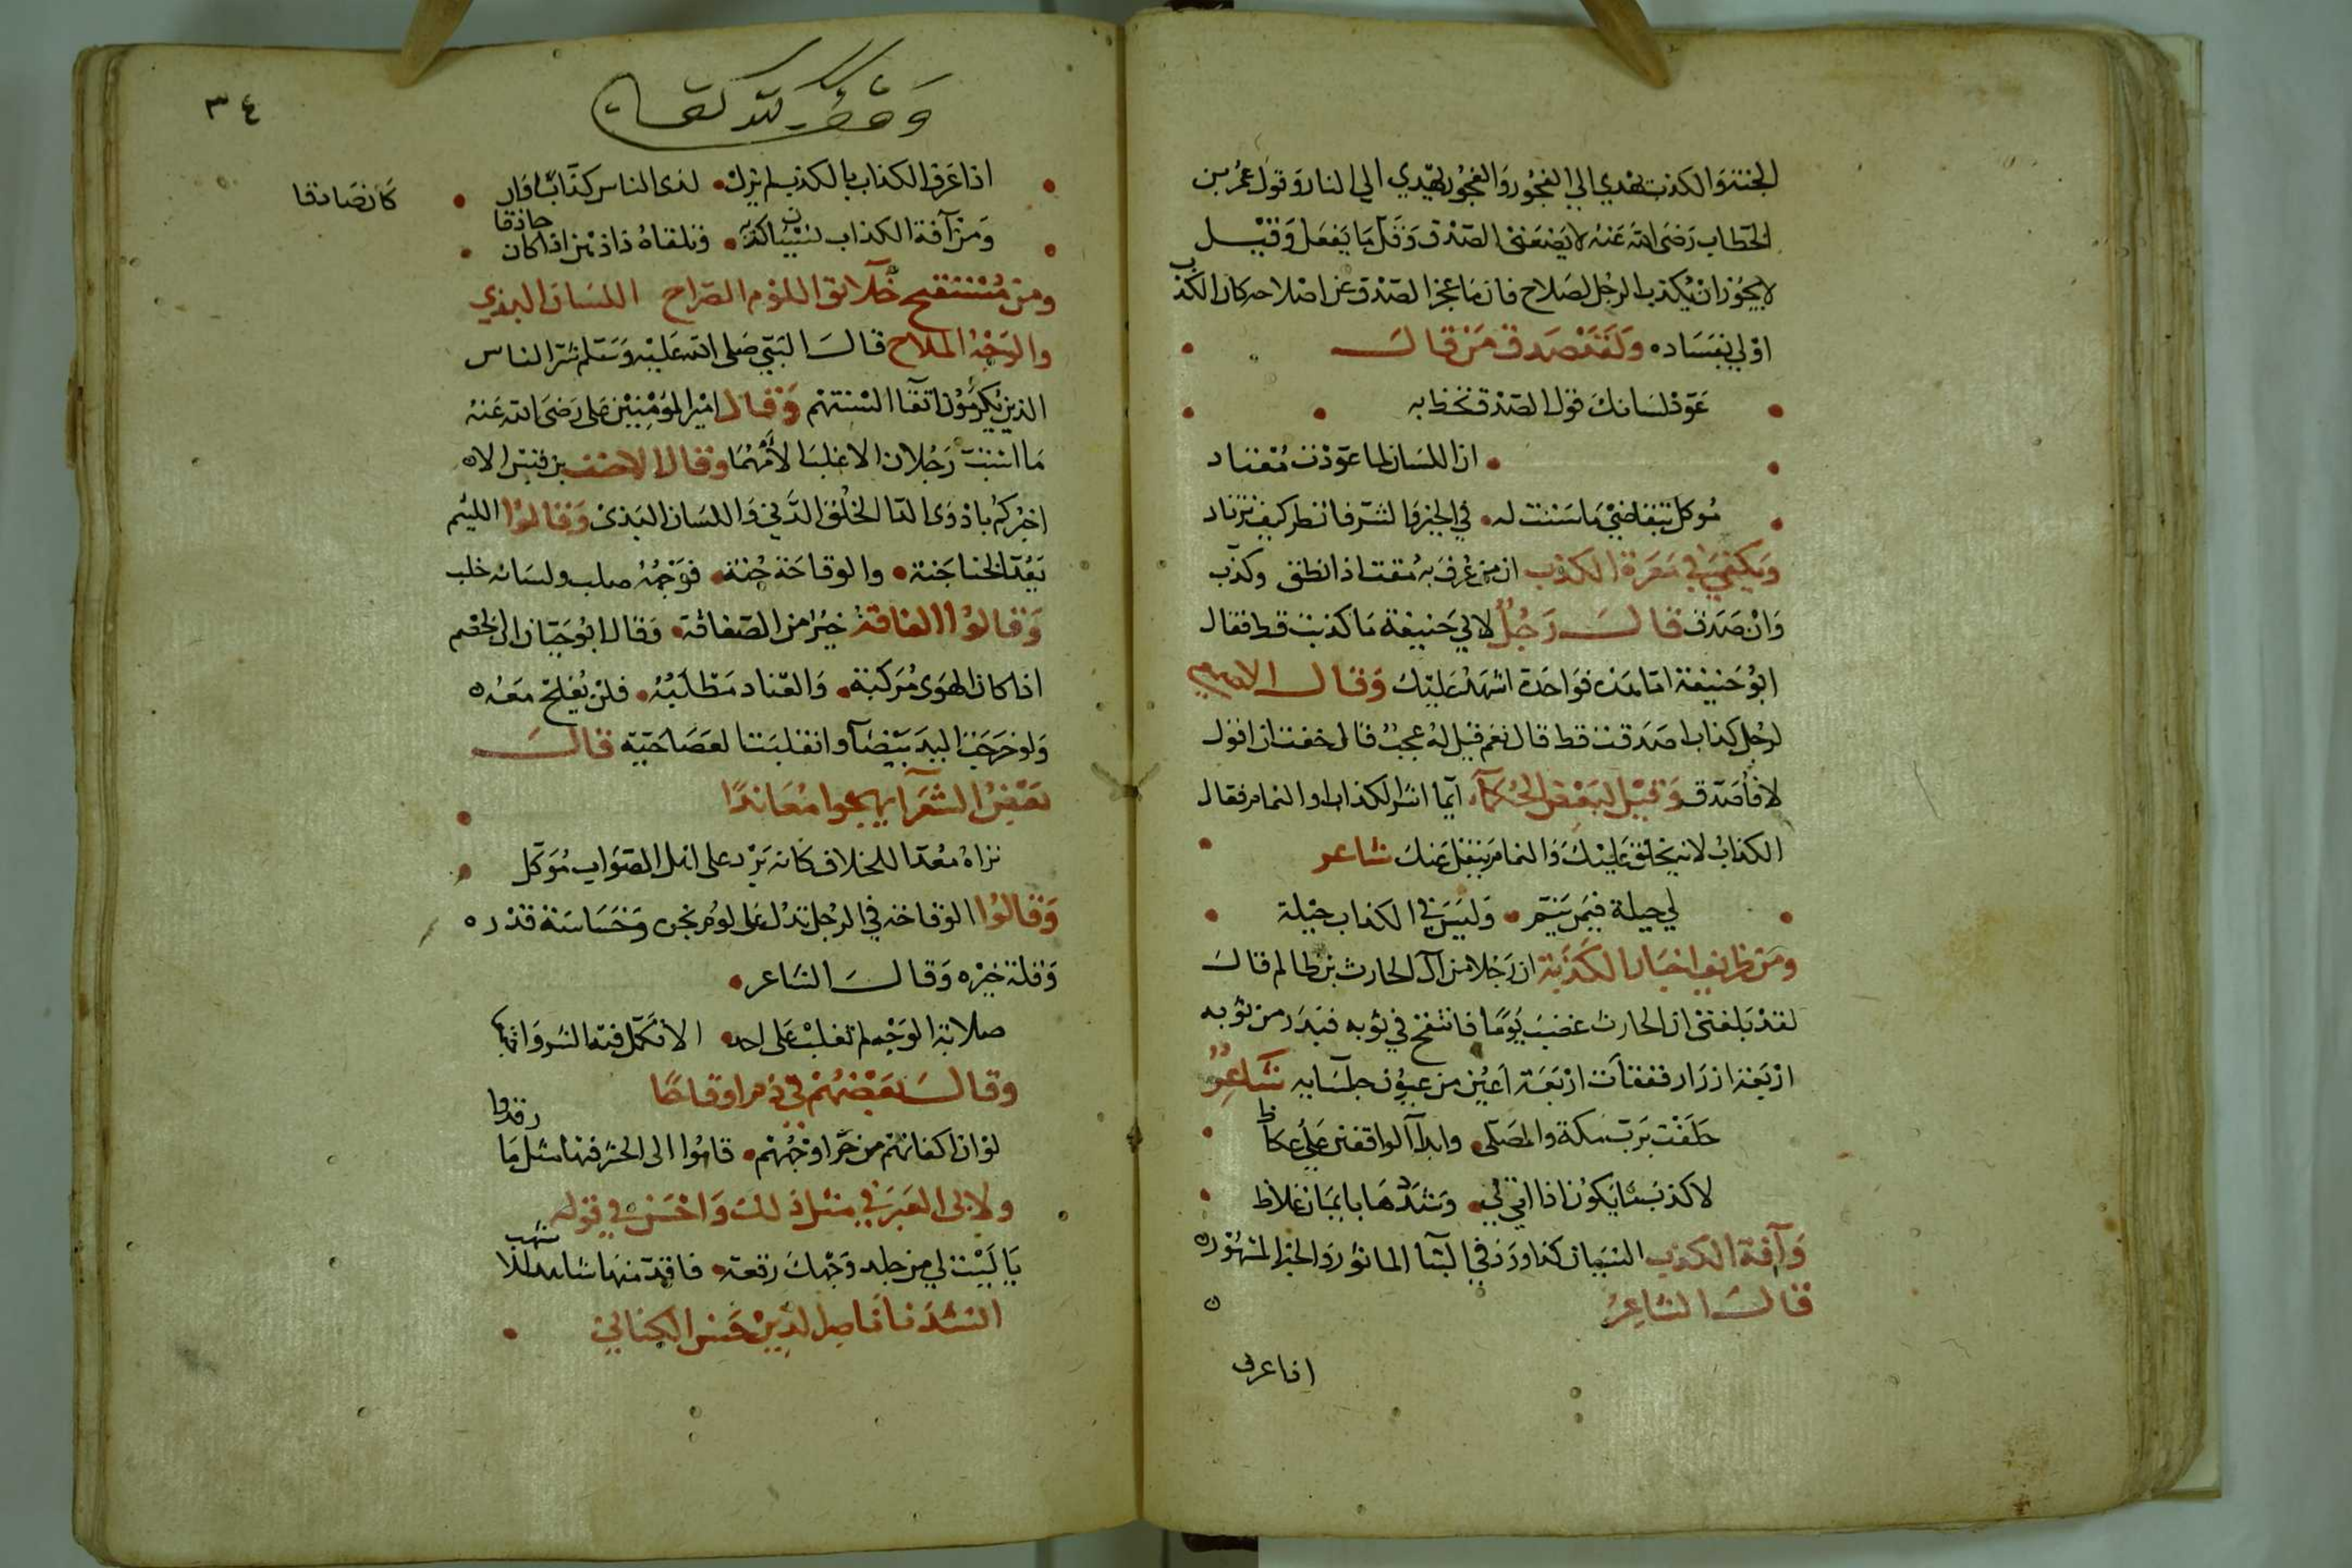 الجنة والكذب يهدي الي الفجور والفجور يهدي الي النار وقول عمر بن
الخطاب رضى الله عنه لا يضعني الصدق وقل ما يفعل وقيل
لا يجوز ان يكذب الرجل لصلاح فان ما عجز الصدق عن اصلاحه كان الكذب
اولي بفساده ولقد صدق من قال
عود لسانك قول الصدق تحظ به
ان اللسان لما عودت معتاد
موكل بتقاضي ما سننت له في الخير والشر فانظر كيف تزداد
ويكفي في معرة الكذب ان من عرف به مقت اذا نطق وكذب
وان صدق قال رجل لابي حنيفة ما كذبت قط فقال
ابو حنيفة اما هذه فواحدة اشهد عليك وقال الاصمعي
لرجل كذاب اصدقت قط قال نعم قيل له عجب قال خفت ان اقول
لا فأصدق وقيل لبعض الحكمآء ايما اشر الكذاب او النمام فقال
الكذاب لانه يخلق عليك والنمام ينقل عنك شاعر
لي حيلة فيمن ينم وليس في الكذاب حيلة
ومن ظرايف اخبار الكذبة ان رجلا من آل الحارث بن ظالم قال
لقد بلغني ان الحارث غضب يوما فانتفخ في ثوبه فبدر من ثوبه
اربعة ازرار ففقأت اربعة اعين من عيون جلسايه شاعر
حلفت برب مكة والمصلي وايد الواقفين علي عكاظ
لاكذب ما يكون اذا وشددها بايمان غلاظ
وآفة الكذب النسيان كذا ورد في المأثور والخبر المشهور
قال الشاعر
اذا عرف
٣٤
وقف لله تعالى
اذا عرف الكذاب بالكذب لم يزل لدى الناس كذابا وان كان صادقا
ومن آفة الكذاب نسيان كذبه وتلقاه ذا ذهن اذا كان حاذقا
ومن مستقبح خلآئق اللؤم الصراح اللسان البذي
والوجه الملاح قال النبي صلى الله عليه وسلم شر الناس
الذين يكرمون اتقا السنتهم وقال امير المؤمنين على رضى الله عنه
ما استب رجلان الا غلب الأمهما وقال الاحنف بن قيس الا
اخبركم بادوى الدا الخلق الدني واللسان البذى وقالوا الليئم
يعد الخنا جنة والوقاحة جنة فوجهه صلب ولسانه خلب
وقالوا الفاقة خير من الصفاقة وقال ابو حيان الى الخصم
اذا كان الهوى مركبه والعناد مطلبه فلن يفلح معه
ولو خرجت اليد بيضآ وانقلبت العصا حية قال
بعض الشعرآ يهجوا معاندا
نراه معدا للخلاف كانه برد على اهل الصواب موكل
وقالوا الوقاحه في الرجل تدل على لوم نجره وخساسة قدره
وقلة خيره وقال الشاعر
صلابة الوجه لم تغلب على احد الا تكمل فيه الشر واجتمعا
وقال بعضهم في ذم اوقاحا
لو ان اكفانهم من حر اوجههم قاموا الى الحشر فيها مثل ما رقدوا
ولابى العبر في مثل ذلك واحسن في قوله
يا ليت لي من جلد وجهك رقعة فاقد منها حافرا للاشهب
انشدنا فاضل الدين حسن الكناني